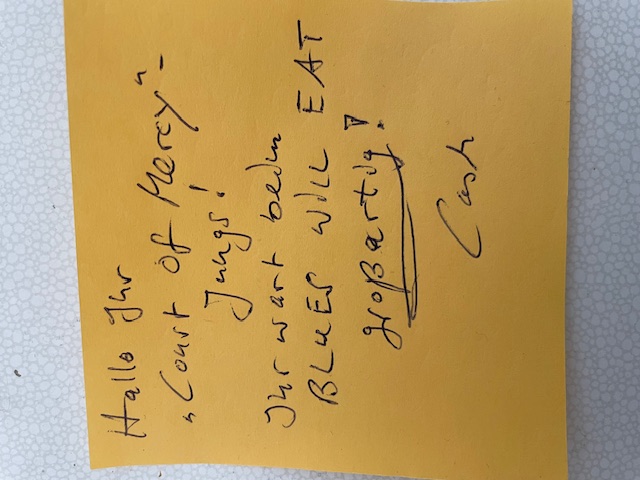 Hallo Ihr
„Court of Mercy"-
Jungs!
Ihr wart beim
BLUES WILL EAT
großartig!
Cash